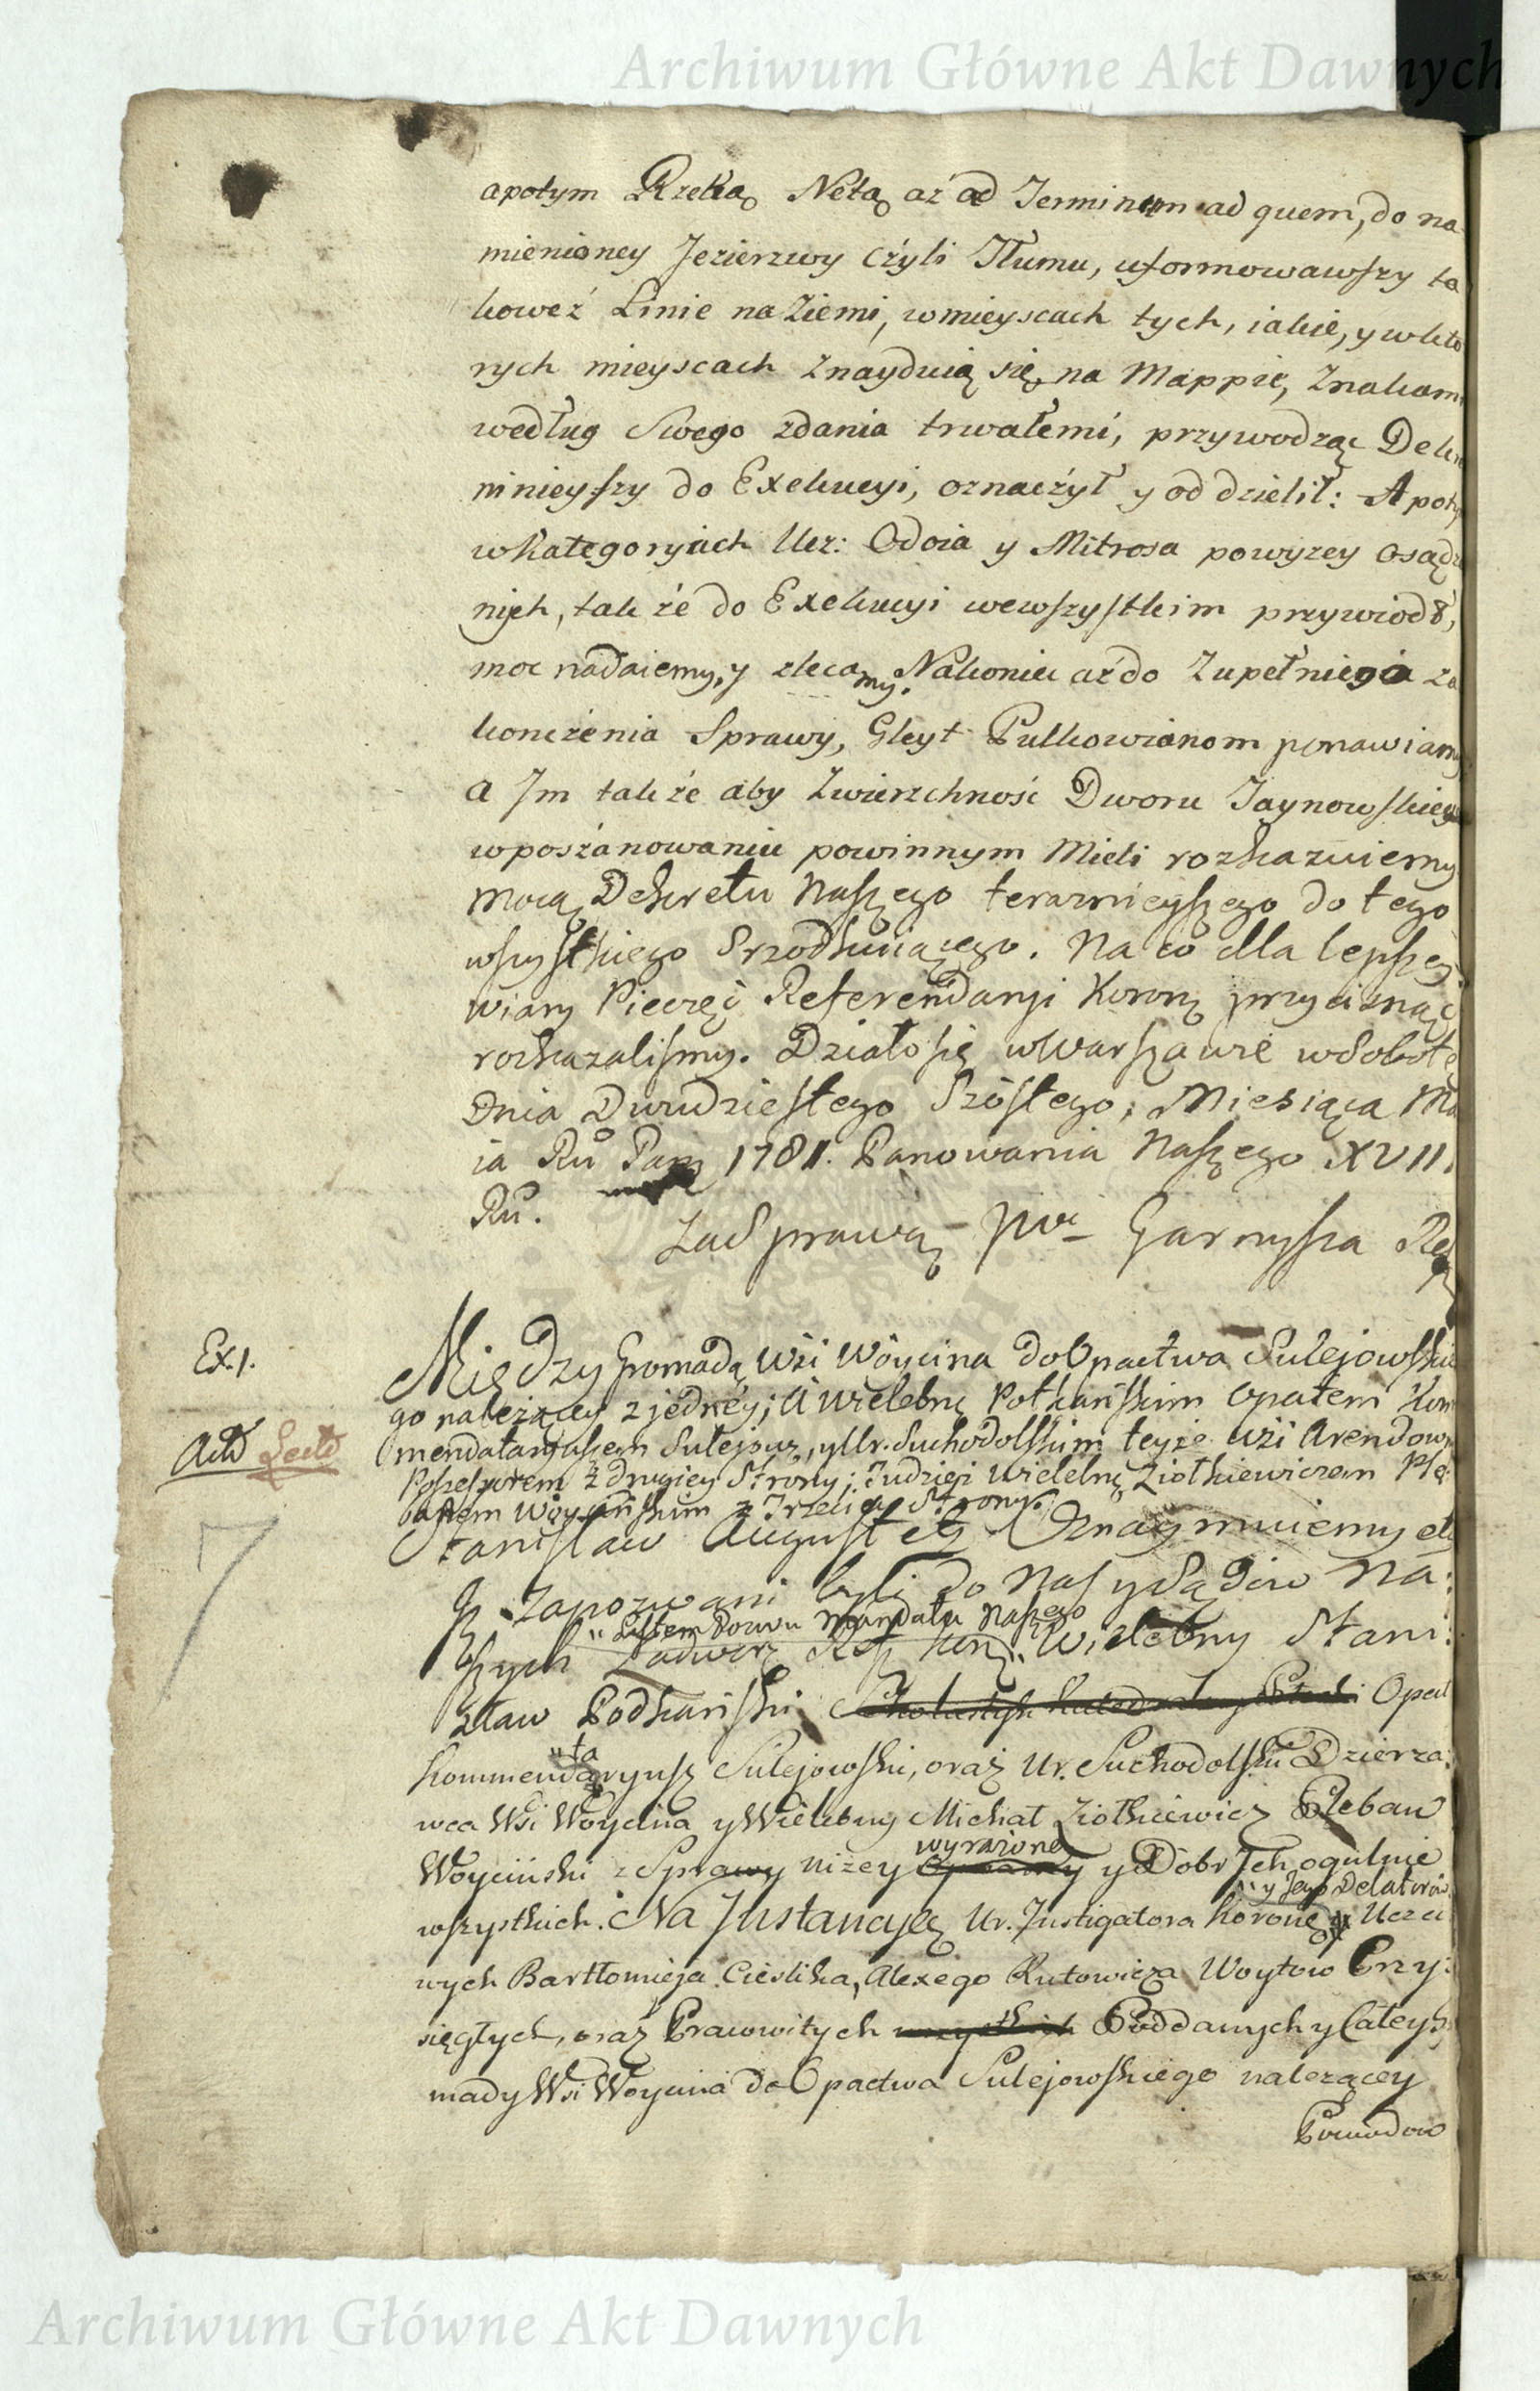 Archiwum Główne Akt Dawnych
apotym Rzeką Netą aż ad Terminum ad quem, do na
mienioney Jezierzwy czyli Tłumu, uformowawszy ta
koweż Linie na Ziemi, wmieyscach tych, iakie, y wkto
rych mieyscach znayduią się na Mappie, Znakam
według Swego zdania trwałemi, przywodząc Dek
ninieyszy do Exekucyi, oznaczył y oddzielił: A poty
wKategoryiach Ucz: Odoia y Mitrosa powyzey osądz
nych, także do Exekucyi wewszystkim przywiodł,
moc nadaiemy, y zlecamy. Nakoniec aż do Zupełniego za
konczenia Sprawy, Gleyt Pulkowianom ponawiamy
a Im także aby Zwierzchność Dworu Jaynowskieg
wposzanowaniu powinnym Mieli rozkazuiemy
Mocą Dekretu Naszego teraznieyszego do tego
wszystkiego Srzodkuiącego. Na co dla lepszey
wiary Pieczęć Referendaryi Koronz przycisnąć
rozkazalismy. Działo się wWarszawie wSobotę
Dnia Dwudziestego Szóstego, Miesiąca Ma
ia Ru Panz 1781. Panowania Naszego XVII.
Ru.
Zad sprawą JWi Garnysza Ref
Ex. 1.
Między Gromadą Wsi Wóycina do Opactwa Sulejowskie
go należącey z jedney; a Wielebnz Potkańskim Opatem Kom
Actd Lectd
mendataryuszem Sulejowz, y Ur. Suchodolskim teyże Wsi Arendownz
Possesyorem z drugiey Strony; Tudzież Wielebnz Ziołkiewiczem Ple
banem Woycińskim z Trzeciey Strony.
Stanisław August etz Oznaymuiemy etz
Jz Zapozwani byli do Nas y Sądów Na:
"Listem Pozwu Mandatu Naszego
szych Zadwornz Refz Konz" Wielebny Stani:
sław Podkański Opat
"ta
Kommendaryusz Sulejowski, oraz Ur. Suchodolski Dzierza:
wca Wsi Woycina y Wielebny Michał Ziołkiewicz Pleban
wyrazoney
Woyciński z Sprawy niżey y Dobr Jch ogulnie
"y Jego Delatorów
wszystkich. Na Instancyą Ur. Instigatora Koronę y Uczci
wych Bartłomieja Cieslika, Alexego Rutowicza Woytow Przy:
sięgłych, oraz Prawowitych wszystkich Poddanych y Całey
mady Wsi Woycina do Opactwa Sulejowskiego nalezącey
Powodow
7
Archiwum Główne Akt Dawnych